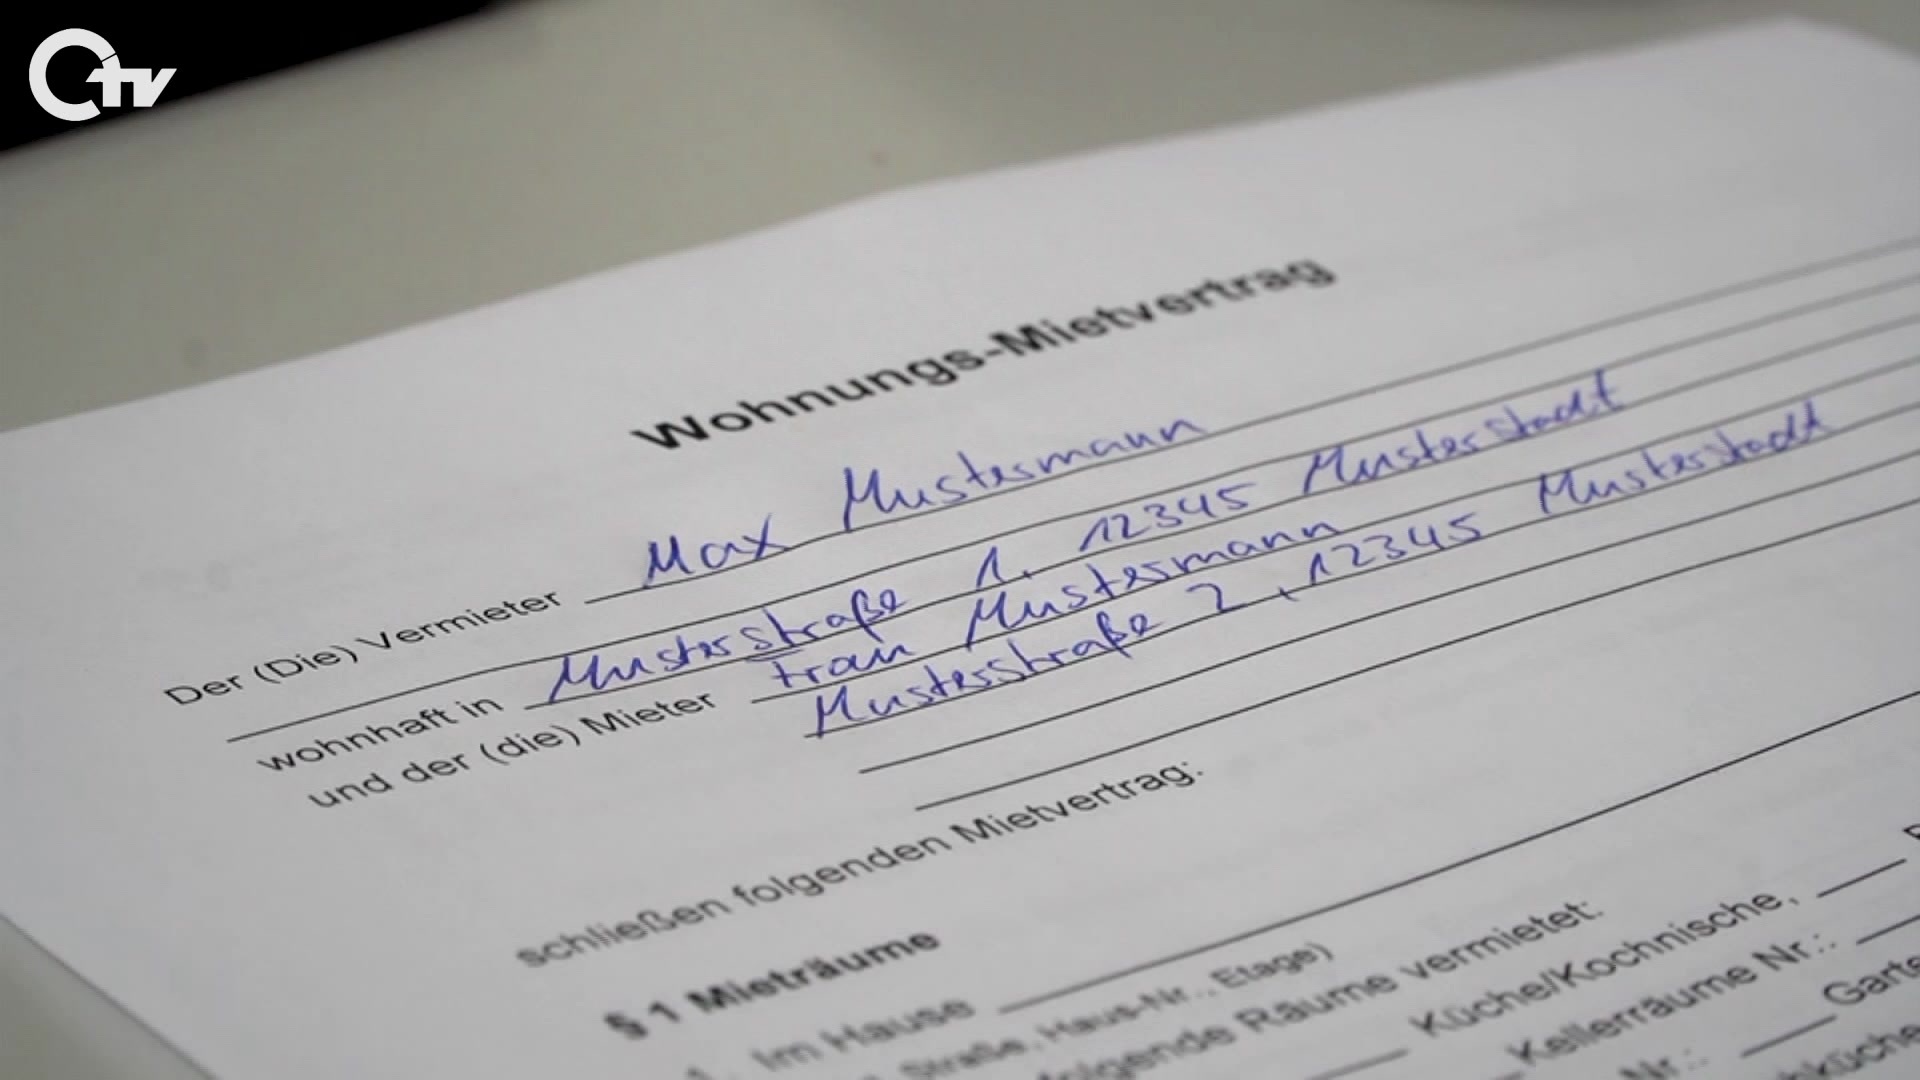 Otv
Wohnungs-Mietvertrag
Der (Die) Vermieter Max Mustermann
wohnhaft in Musterstraße 1, 12345 Musterstadt
und der (die) Mieter Frau Mustermann
Musterstraße 2, 12345 Musterstadt
schließen folgenden Mietvertrag:
§ 1 Mieträume
1. Im Hause
Straße, Haus-Nr., Etage)
folgende Räume vermietet:
Küche/Kochnische,
Kellerräume Nr.:
Nr.: